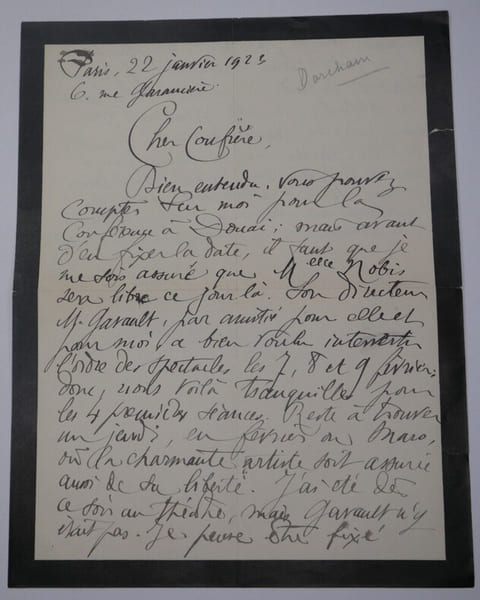 Paris, 22 janvier 1923
6. rue Garancière.
Dorchain
Cher Confrère,
Bien entendu, vous pouvez
compter sur moi pour la
Conférence à Douai ; mais avant
d'en fixer la date, il faut que je
me sois assuré que Melle Nobis
sera libre ce jour là. Son directeur
M. Gavault, par amitié pour elle et
pour moi a bien voulu intervertir
l'ordre des spectacles les 7, 8 et 9 février;
donc, nous voilà tranquilles pour
les 4 premières séances. Reste à trouver
un jeudi, en février ou mars,
où la charmante artiste soit assurée
aussi de sa liberté. J'ai été dès
ce soir au théâtre, mais Gavault n'y
était pas. Je pense être fixé